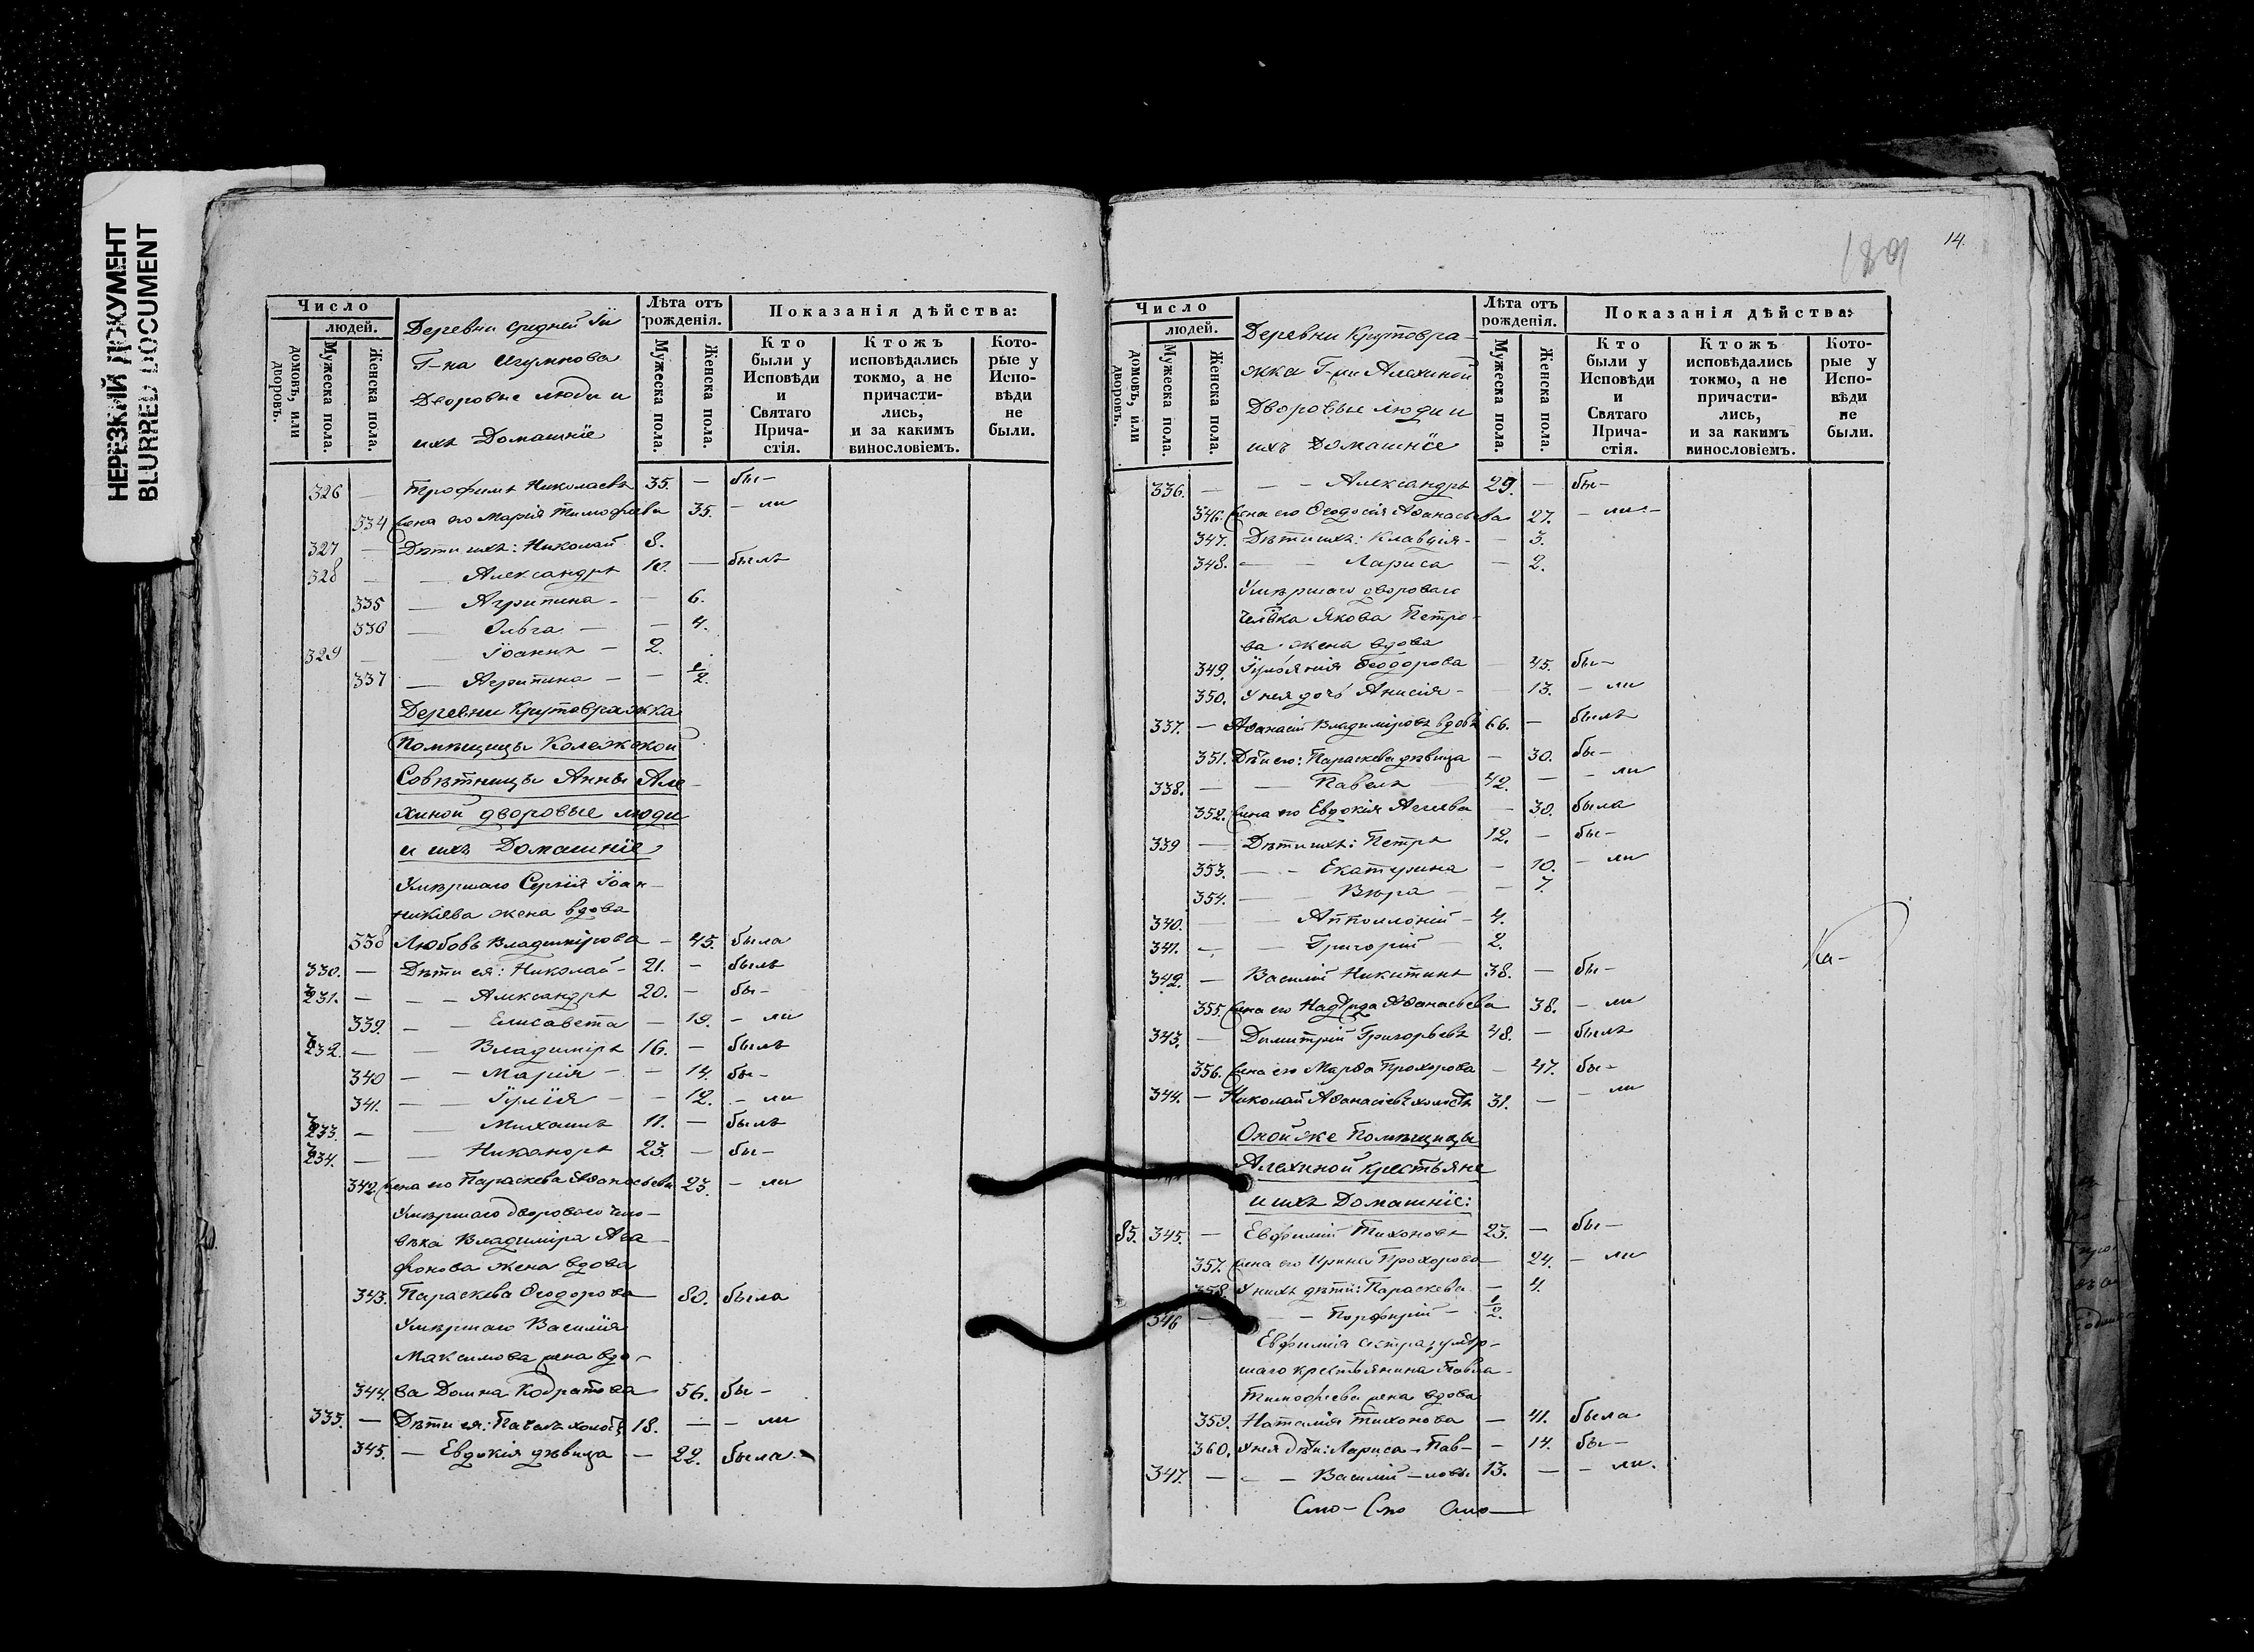 НЕРЕЗКИЙ ДОКУМЕНТ
BLURRED DOCUMENT
Число
людей.
домовъ, или дворовъ.
Мужеска пола.
Женска пола.
Деревни средней
Г-на Игумнова
Дворовые люди и
ихъ Домашніе
Лѣта отъ рожденія.
Мужеска пола.
Женска пола.
Показанія дѣйства:
Кто были у Исповѣди и Святаго Прича-стія.
Ктожъ исповѣдались токмо, а не причасти-лись, и за какимъ винословіемъ.
Кото-рые у Испо-вѣди не были.
326 — Трофимъ Николаевъ 35. — бы-
334 жена его Марія Тимофеева 35. - ли
327 — Дѣти ихъ: Николай 8.
328 — — Александръ 10. — былъ
335 — Агрипина - — 6.
336 — Ольга — — 4.
329 — — Іоаннъ — 2.
337 — Агрипина — — 1/2.
Деревни Крутовражка
Помѣщицы Колежской
Совѣтницы Анны Але-
хиной дворовые люди
и ихъ Домашніе
Умѣршаго Сергія Іоан-
никіева жена вдова
338 Любовь Владимірова — 45. была
330. — Дѣти ея: Николай - 21. — былъ
331. — — — Александръ 20. — бы-
339. — — Елисавета — 19. - ли
332. — — Владиміръ 16. — былъ
340 — — Марія — — 14. бы-
341. — — Іулія — — 12. - ли
333. — — Михаилъ 11. — былъ
334. — — Никаноръ 23. — бы-
342 жена его Параскева Аѳанасьева 23. - ли
Умѣршаго дворового чело-
вѣка Владиміра Ага-
фонова жена вдова
343. Параскева Ѳеодорова 80. была
Умѣршаго Василія
Максимова жена вдо-
344. ва Домна Кодратова 56. бы-
335. — Дѣти ея: Павелъ холостъ 18. — - ли
345. — Евдокія дѣвица — 22. была
189 14.
Число
людей.
домовъ, или дворовъ.
Мужеска пола.
Женска пола.
Деревни Крутовра-
жка Г-жи Алехиной
Дворовые люди и
ихъ Домашніе
Лѣта отъ рожденія.
Мужеска пола.
Женска пола.
Показанія дѣйства:
Кто были у Исповѣди и Святаго Прича-стія.
Ктожъ исповѣдались токмо, а не причасти-лись, и за какимъ винословіемъ.
Кото-рые у Испо-вѣди не были.
336. — — — Александръ 29. — бы-
346. жена его Ѳеодосія Аѳанасьева 27. - ли-
347. Дѣти ихъ: Клавдія - — 3.
348. — — Лариса — 2.
Умѣршаго двороваго
челвѣка Якова Петро-
ва жена вдова
349. Ѳеодорова — 45. бы-
350. У нея дочь Анисія - 13. - ли
337. — Аѳанасій Владиміровъ вдовъ 66. — былъ
351. Дѣти его: Параскева дѣвица — 30. бы-
338. — — Павелъ 42. — - ли
352. жена его Евдокія Агеева — 30. была
339 — Дѣти ихъ: Петръ 12. — бы-
353. — — Екатерина — 10. - ли
354. — — Вѣра — — 7.
340. — — Апполлоній - 4.
341. — — Григорій — 2.
Ка-
342. — Василій Никитинъ 38. — бы-
355. жена его Надежда Аѳанасьева 38. - ли
343. — Димитрій Григорьевъ 48. — былъ
356. жена его Марѳа Прохорова — 47. бы-
344. — Николай Аѳанасіевъ холостъ 31. — - ли
Оной же Помѣщицы
Алехиной Крестьяне
и ихъ Домашніе:
85. 345. — Евфимій Тихоновъ 23. — бы-
357. жена его Ирина Прохорова 24. - ли
358. У нихъ дѣти: Параскева — 4.
346 — — — Порфирій — 1/2.
Евфимія сестра, умѣр-
шаго крестьянина Павла
Тимофеева жена вдова
359. Наталія Тихонова — 41. была
360. У нея дѣти: Лариса - Пав- — 14. бы-
347. — — — Василій — ловы 13. — - ли.